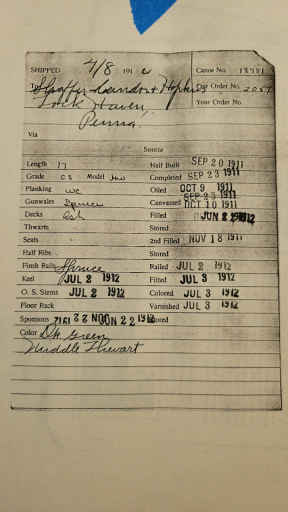 SHIPPED 7/8 191 2 Canoe No. 18751
To Shaffer Candor & Hopkins Our Order No. 2057
Lock Haven, Your Order No.
Penna.
Via
Service
Length 17 Half Built SEP 20 1911
Grade CS Model Completed SEP 23 1911
Planking WC Oiled OCT 9 1911
Gunwales Spruce Canvassed SEP 23 1911 OCT 10 1911
Decks Ash Filled JUN 2 1912
Thwarts Stored
Seats 2nd Filled NOV 18 1911
Half Ribs Stored
Finish Rails Spruce Railed JUL 2 1912
Keel JUL 2 1912 Fitted JUL 3 1912
O. S. Stems JUL 2 1912 Colored JUL 3 1912
Floor Rack Varnished JUL 3 1912
Sponsons Stored
Color Dk Green
Middle Thwart